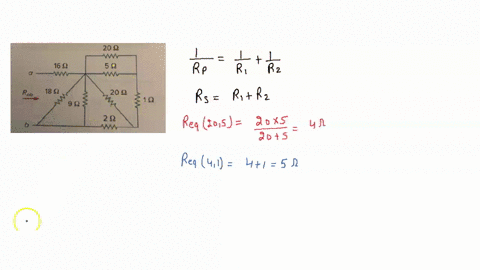 20 Ω
16 Ω
5 Ω
a
18 Ω
20 Ω
9 Ω
1 Ω
R_ab
2 Ω
b
1/R_P = 1/R_1 + 1/R_2
R_S = R_1 + R_2
Req (20,5) = 20×5/20+5 = 4 Ω
Req (4,1) = 4+1 = 5 Ω